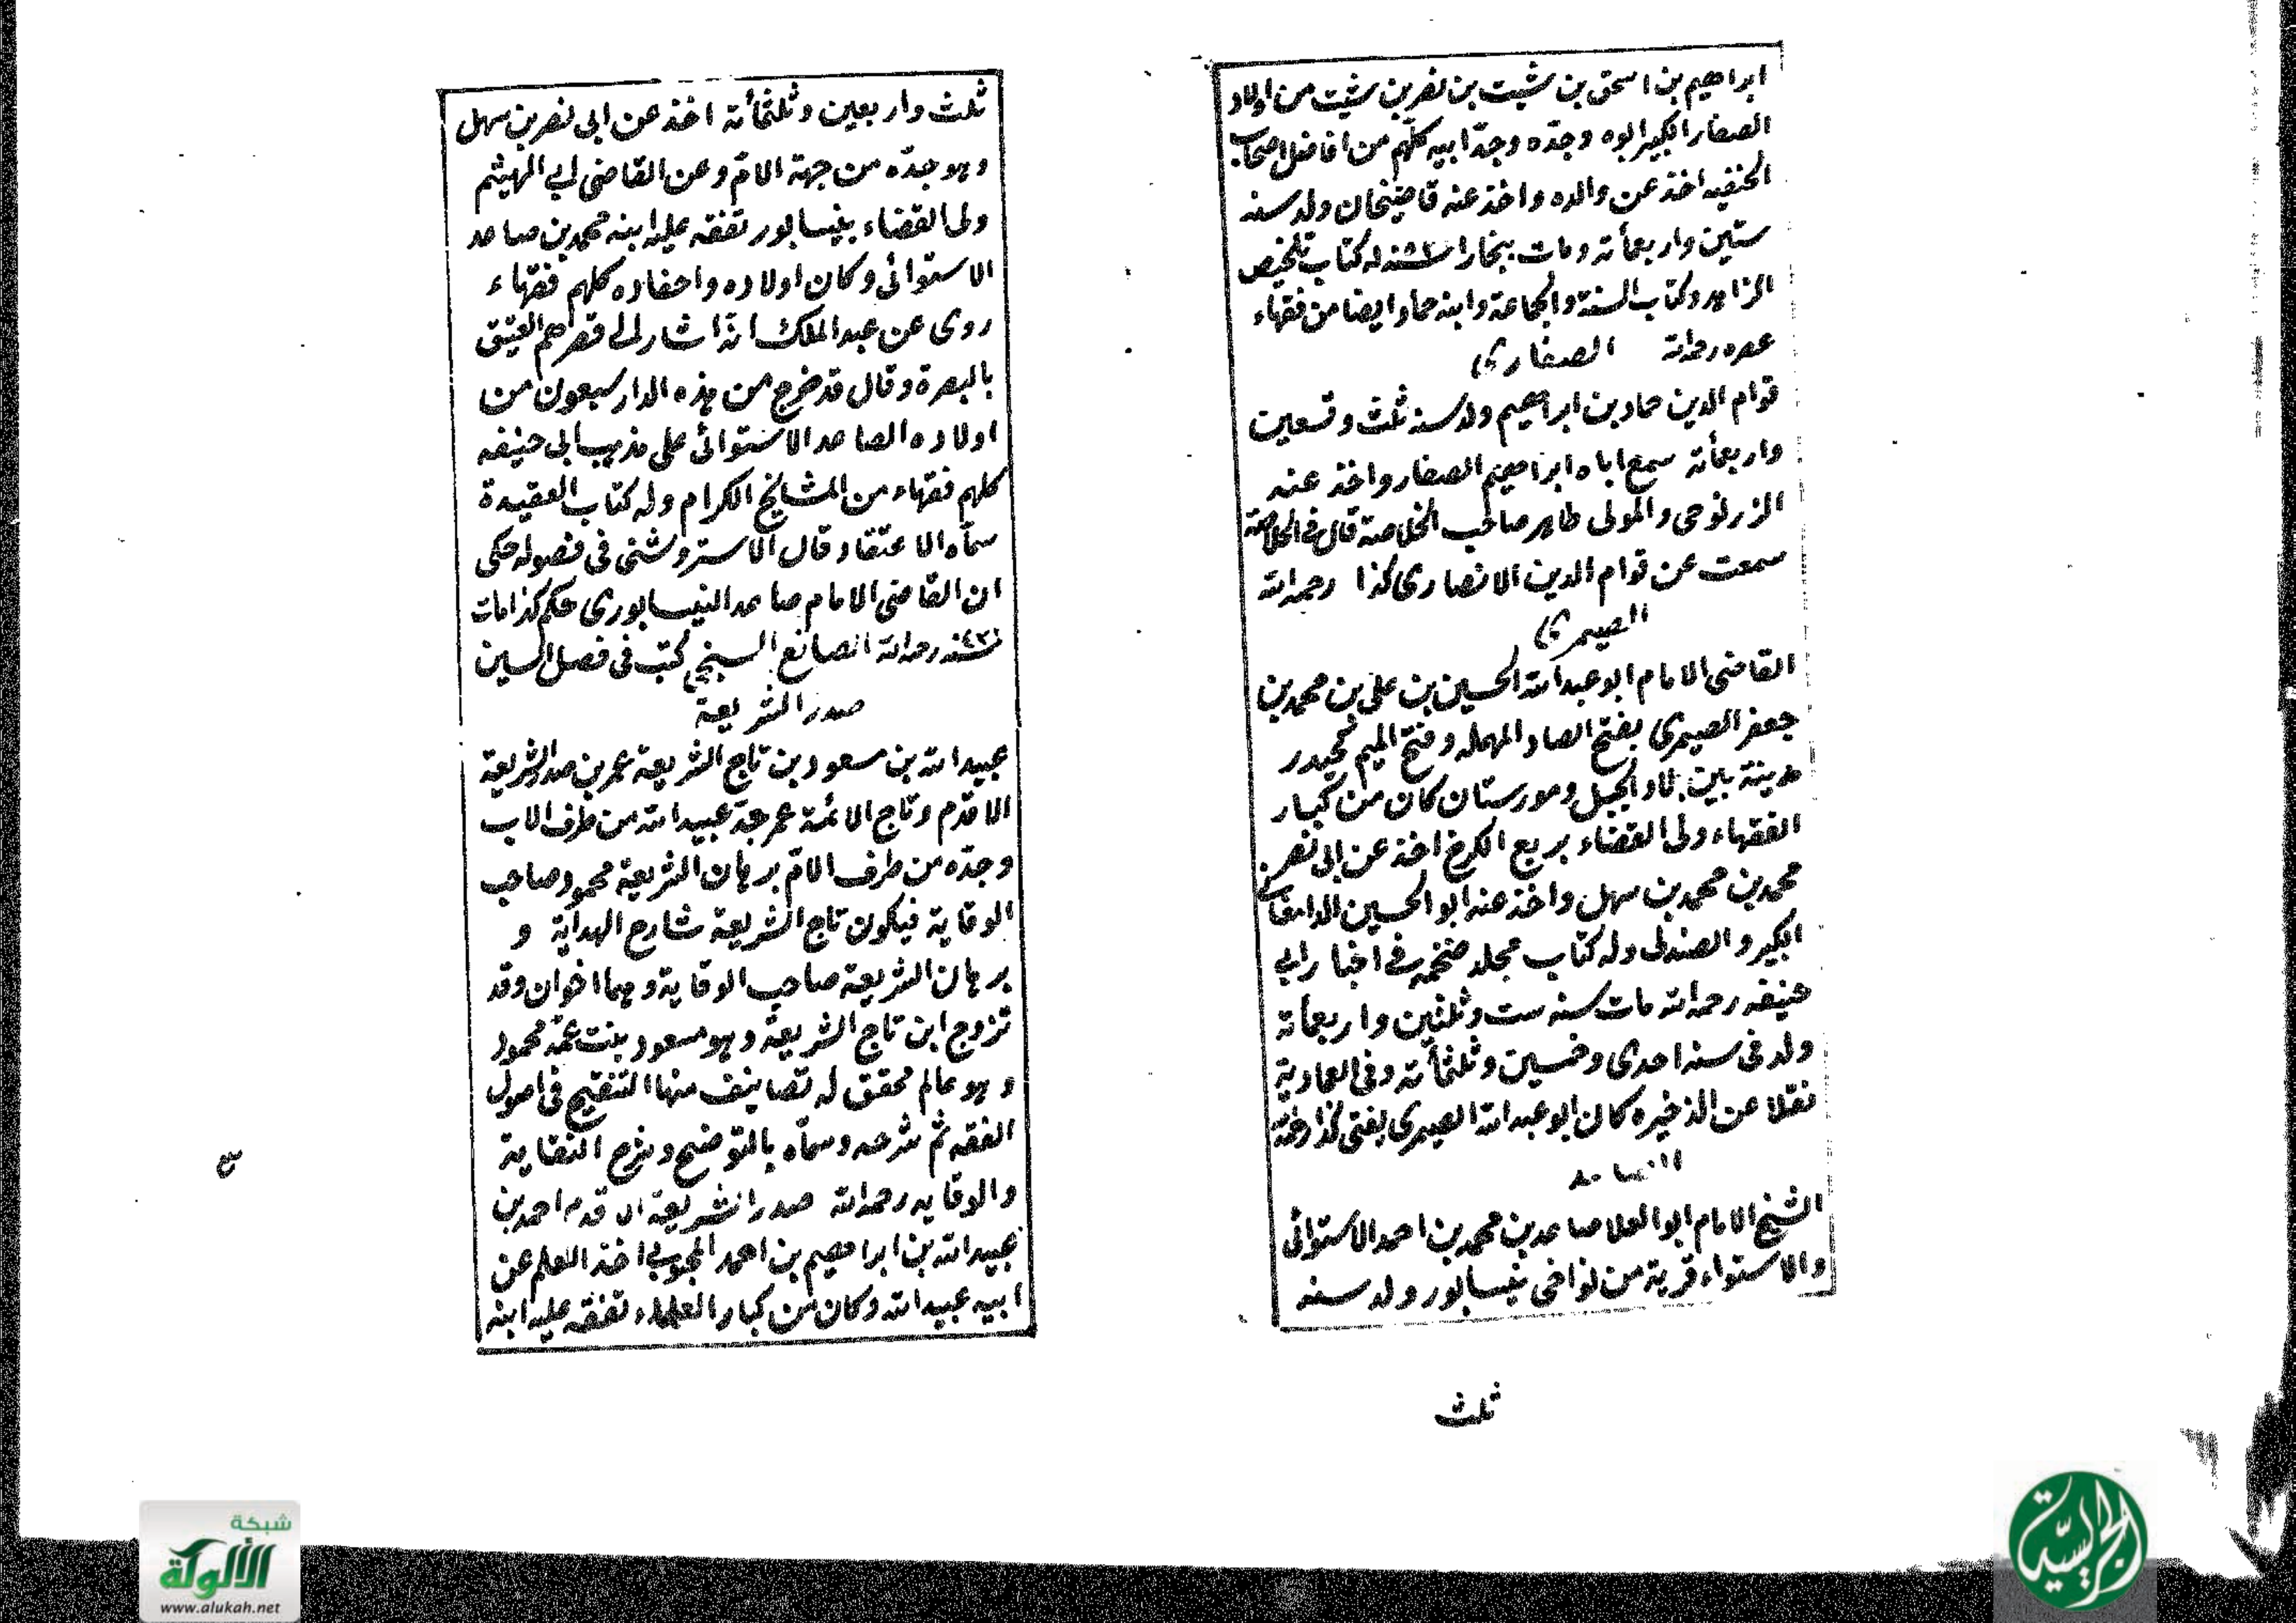 ابراهيم بن اسحق بن شيت بن نصر بن شيت من اولاد
الصفار الكبير ابوه وجده وجد ابيه كلهم من افاضل اصحاب
الحنفيه اخذ عن والده واخذ عنه قاضيخان ولد سنه
ستين واربعمأئة ومات ببخارا سنه له كتاب تلخيص
الزاهد وكتاب السنة والجماعة وابنه حماد ايضا من فقهاء
عصره رحمه الله الصفاري
قوام الدين حماد بن ابراهيم ولد سنه ثلث وتسعين
واربعمأئة سمع اباه ابراهيم الصفار واخذ عنه
الزرنوجى والمولى طاهر صاحب الخلاصة قال فى الخلاصة
سمعت عن قوام الدين الانصارى كذا رحمه الله
الصيمري
القاضى الامام ابو عبد الله الحسين بن على بن محمد بن
جعفر الصيمرى بفتح الصاد المهمله وفتح الميم كحيدر
مدينة بين بلاد الجبل وخوزستان كان من كبار
الفقهاء ولى القضاء بربع الكرخ اخذ عن ابى نصر بن
محمد بن محمد بن سهل واخذ عنه ابو الحسين الدامغانى
الكبير والصندلى وله كتاب مجلد ضخم فى اخبار ابى
حنيفه رحمه الله مات سنه ست وثلثين واربعمأئة
ولد فى سنه احدى وخمسين وثلثمأئة وفى العمادية
نقلا عن الذخيره كان ابو عبد الله الصيمرى يفتى كذا رحمه الله
الصاعد
الشيخ الامام ابو العلا صاعد بن محمد بن احمد الاستوائى
والاستواء قرية من نواحى نيسابور ولد سنه
ثلث
ثلث واربعين وثلثمأئة اخذ عن ابى نصر بن سهل
وهو جده من جهة الام وعن القاضى ابى الهيثم
ولى القضاء بنيسابور تفقه عليه ابنه محمد بن صاعد
الاستوائى وكان اولاده واحفاده كلهم فقهاء
روى عن عبد الملك انه اشار الى قصرهم العتيق
بالبصرة وقال قد خرج من هذه الدار سبعون من
اولاده الصاعد الاستوائى على مذهب ابى حنيفه
كلهم فقهاء من المشايخ الكرام وله كتاب العقيدة
سماه الاعتقاد وقال الاستروشنى فى فصوله حكى
ان القاضى الامام صاعد النيسابورى حكم كذا مات
سنه رحمه الله الصانع السنجى كتب فى فصل السين
صدر الشريعة
عبيد الله بن مسعود بن تاج الشريعة عمر بن صدر الشريعة
الاقدم وتاج الائمة عمر جد عبيد الله من طرف الاب
وجده من طرف الام برهان الشريعة محمود صاحب
الوقاية فيكون تاج الشريعة شارح الهداية و
برهان الشريعة صاحب الوقاية وهما اخوان وقد
تزوج ابن تاج الشريعة وهو مسعود بنت عمه محمود
وهو عالم محقق له تصانيف منها التنقيح فى اصول
الفقه ثم شرحه وسماه بالتوضيح وشرح النقاية
والوقايه رحمه الله صدر الشريعة الاقدم احمد بن
عبيد الله بن ابراهيم بن احمد المحبوبى اخذ العلم عن
ابيه عبيد الله وكان من كبار العلماء تفقه عليه ابنه
شبكة
الألوكة
www.alukah.net